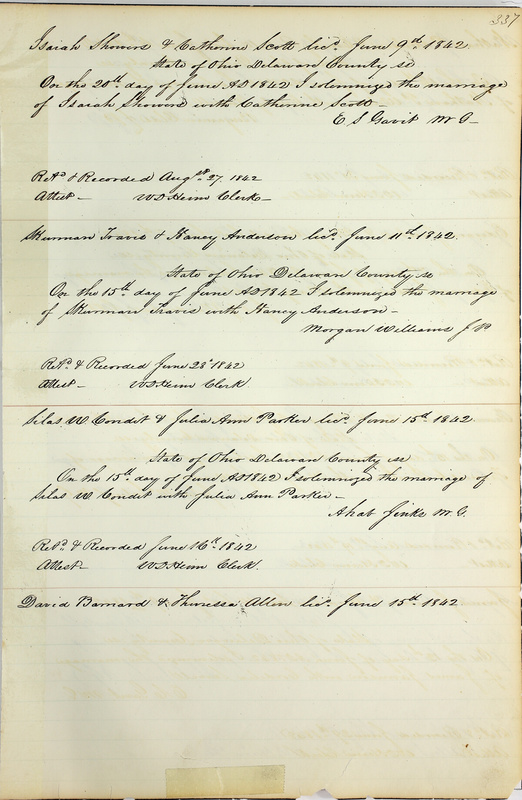 337
Isaiah Showers & Catherine Scott licd. June 9th 1842
State of Ohio Delawan County ss
On the 20th day of June AD 1842 I solemnized the marriage
of Isaiah Showers with Catherine Scott
E S Gavit M G
Retd & Recorded Augst 27. 1842
Attest W D Heim Clerk
Travis & Nancy Anderson licd. June 11th 1842.
State of Ohio Delawan County ss
On the 15th day of June AD 1842 I solemnized the marriage
of Travis with Nancy Anderson
Morgan Williams J P
Retd & Recorded June 28th 1842
Attest W D Heim Clerk
Silas W Condit & Julia Ann Parker licd. June 15th 1842
State of Ohio Delawan County ss
On the 15th day of June AD 1842 I solemnized the marriage of
Silas W Condit with Julia Ann Parker
Jinks M. G.
Retd. & Recorded June 16th 1842
Attest W D Heim Clerk.
David Barnard & Theressa Allen licd. June 15th 1842